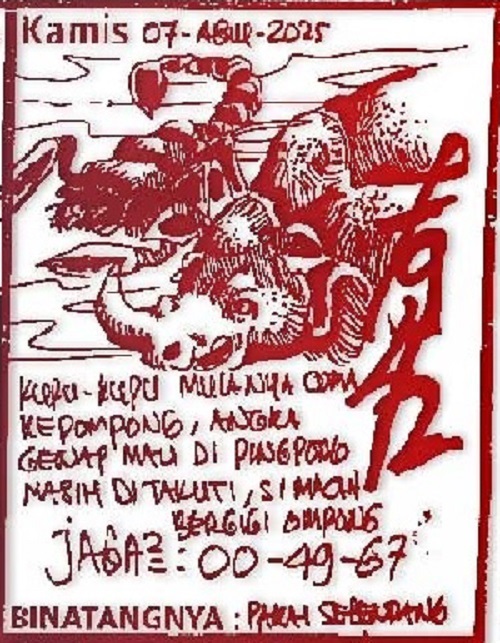 Kamis 07-ABUU-2025
KUPU-KUPU MULANYA
KEPOMPONG, ANGKA
GENAP MAU DI PINGPONG
MASIH DITAKUTI, SI MACAN
BERGIGI OMPONG
JAGA2 : 00-49-67
BINATANGNYA :